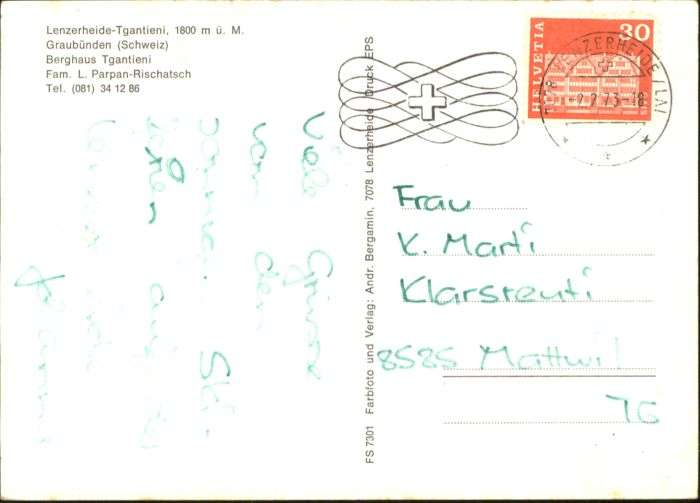 Lenzerheide-Tgantieni, 1800 m ü. M.
Graubünden (Schweiz)
Berghaus Tgantieni
Fam. L. Parpan-Rischatsch
Tel. (081) 34 12 86
HELVETIA
30
LENZERHEIDE/LAI
73-18
FS 7301 Farbfoto und Verlag: Andr. Bergamin, 7078 Lenzerheide Druck EPS
Viele Grüsse
von den
Ski-
Frau
K. Marti
Klarsreuti
8585 Mattwil
TG